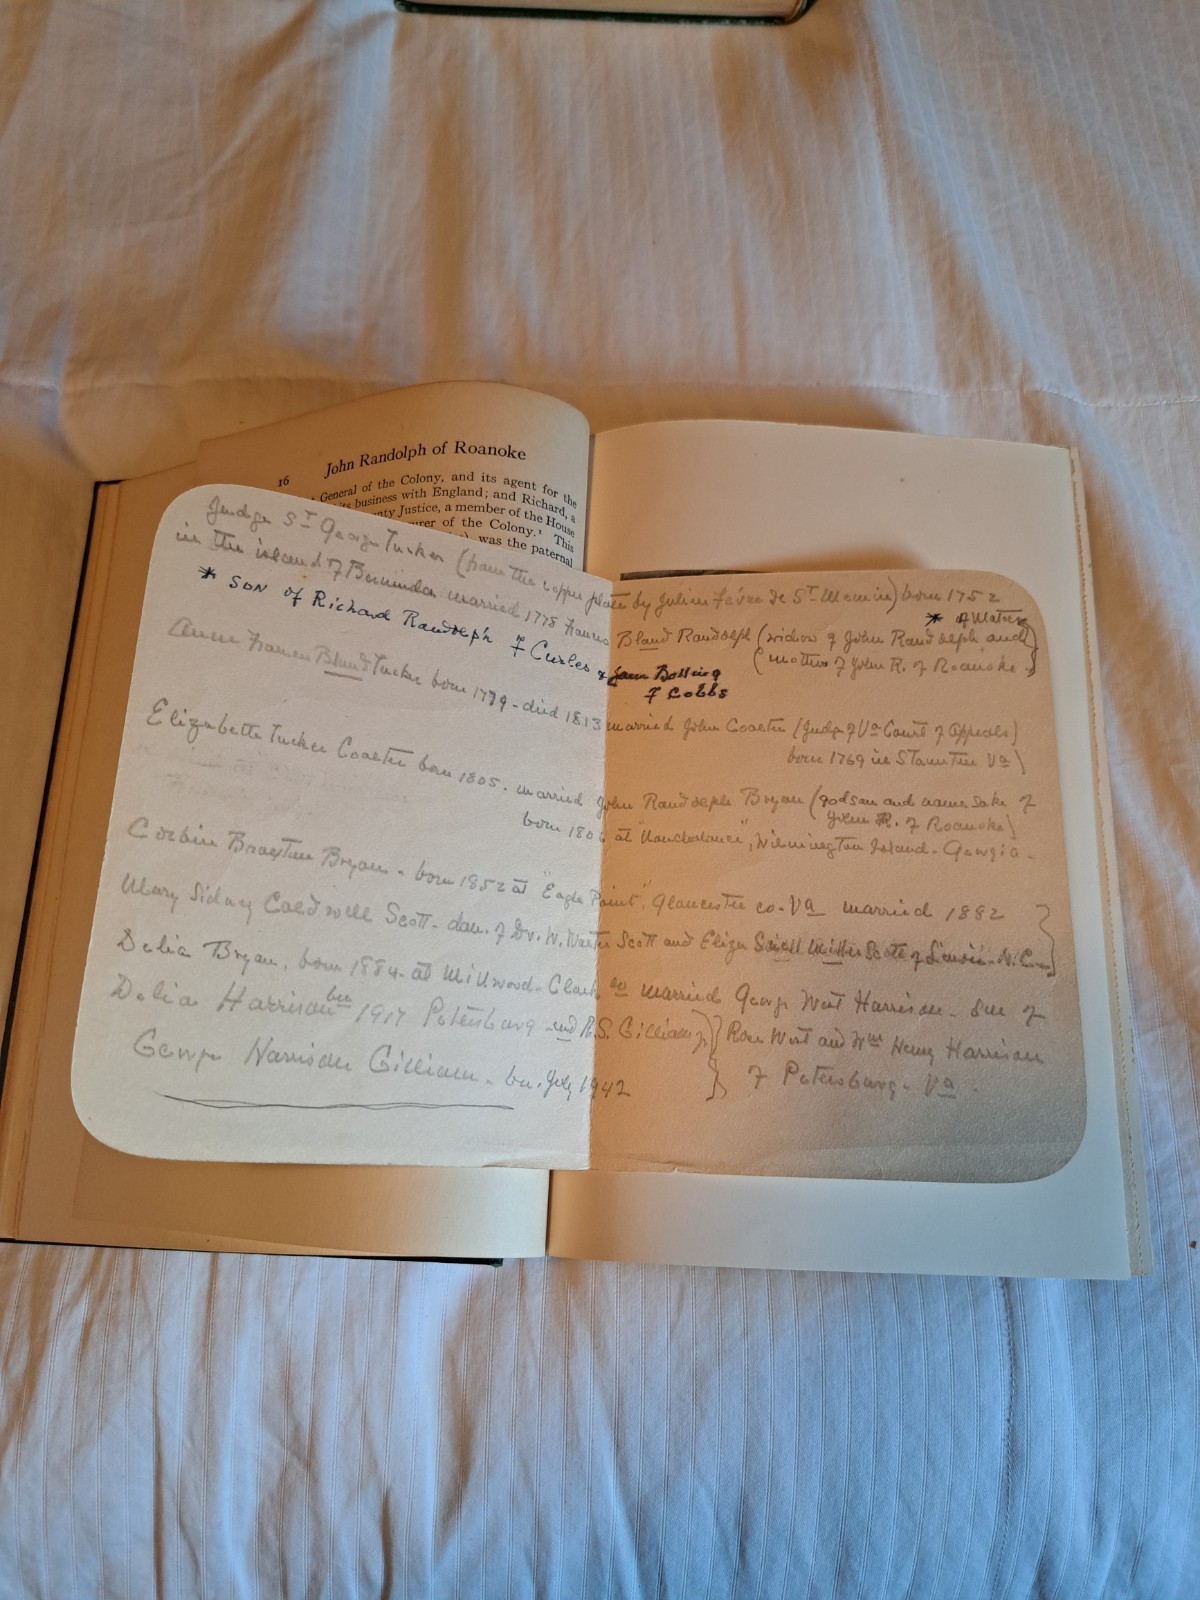 16 John Randolph of Roanoke
General of the Colony, and its agent for the
its business with England; and Richard, a
nty Justice, a member of the House
urer of the Colony.¹ This
was the paternal
Judge St George Tucker (from the copper plate by Julien Févre de St Memin) born 1752
in the island of Bermuda married 1778 Frances Bland Randolph (widow of John Randolph and
* of Matoax
mother of John R. of Roanoke.)
* SON of Richard Randolph of Curles & Jane Bolling
of Cobbs
Anne Frances Bland Tucker born 1779 - died 1813 married John Coalter (Judge of Va Court of Appeals)
born 1769 in Staunton Va)
Elizabeth Tucker Coalter born 1805. married John Randolph Bryan (godson and name sake of
John R. of Roanoke)
born 1806 at "Nonchalance", Wilmington Island - Georgia -
Corbin Braxton Bryan - born 1852 at "Eagle Point", Gloucester co - Va married 1882
Mary Sidney Caldwell Scott - dau. of Dr. W. Scott and Eliza Miller Scott of N.C.
Delia Bryan, born 1884 - at Millwood - Clark co married George West Harrison - son of
Delia Harrison bn 1917 Petersburg - md R.S. Gilliam jr } Rose West and Wm Henry Harrison
George Harrison Gilliam - bn. July 1942 } of Petersburg - Va.